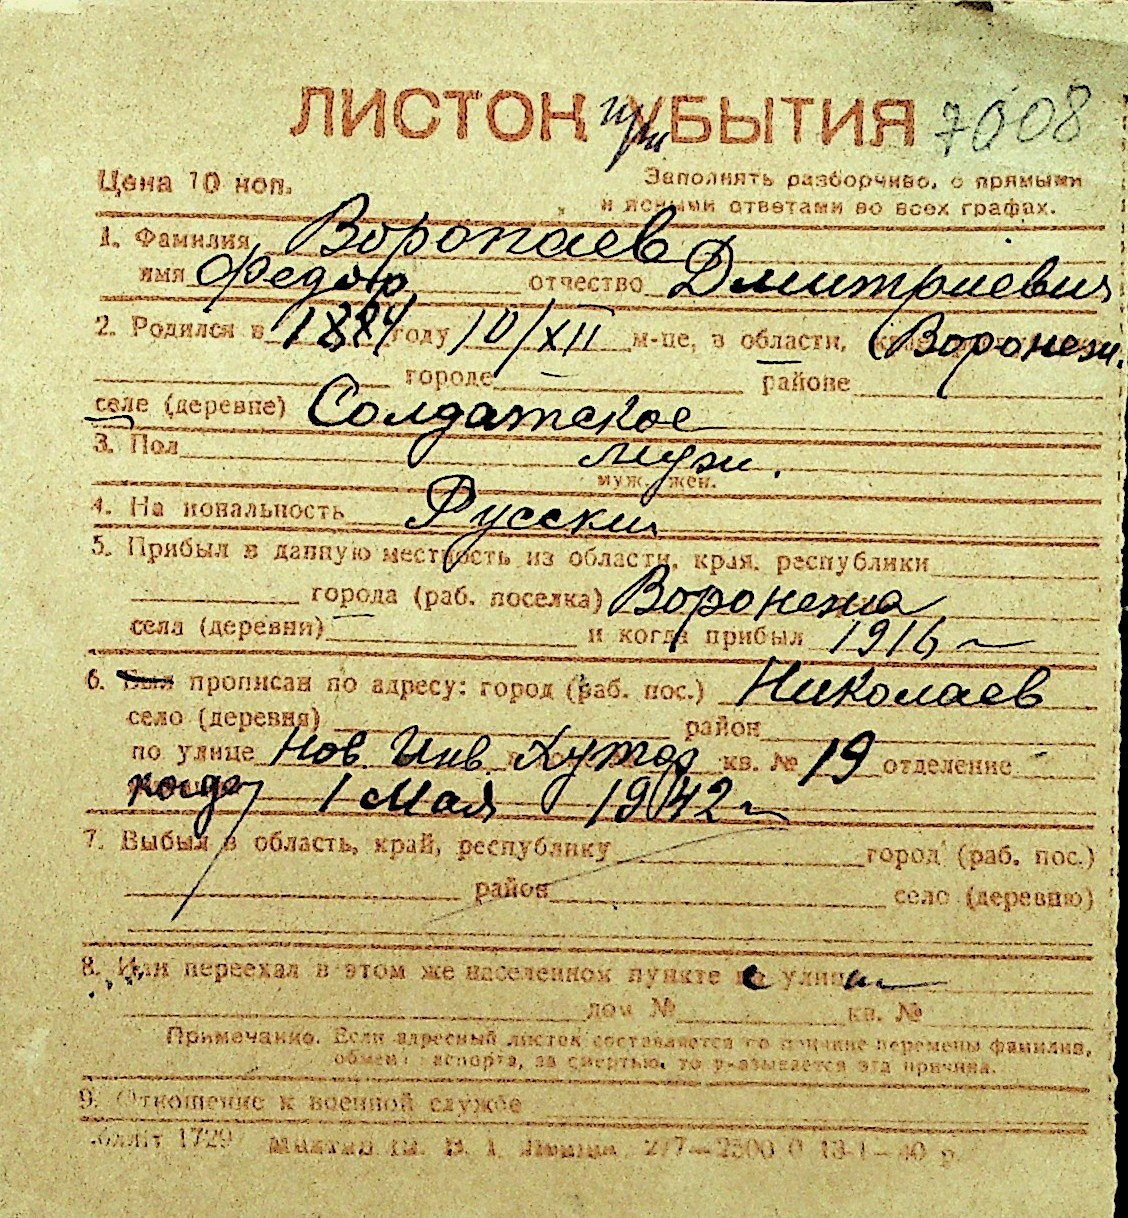 ЛИСТОК при УБЫТИЯ 7008
Цена 10 коп.
Заполнять разборчиво, с прямыми
и ясными ответами во всех графах.
1. Фамилия Воропаев
имя Федор отчество Дмитриевич
2. Родился в 1884 году 10/XII м-це, в области, Воронеж.
городе районе
селе (деревне) Солдатское
3. Пол муж.
муж. жен.
4. Национальность Русский
5. Прибыл в данную местность из области, края, республики
города (раб. поселка) Воронежа
села (деревни) и когда прибыл 1916
6. Был прописан по адресу: город (раб. пос.) Николаев
село (деревня) район
по улице Нов. Инв. Хутор кв. № 19 отделение
когда 1 Мая 1942
7. Выбыл в область, край, республику город (раб. пос.)
район село (деревню)
8. Или переехал в этом же населенном пункте с улицы
дом № кв. №
Примечание. Если адресный листок составляется по причине перемены фамилии,
обмена паспорта, за смертью, то указывается эта причина.
9. Отношение к военной службе
1729 2/7—2500 0 13-1—40 р.